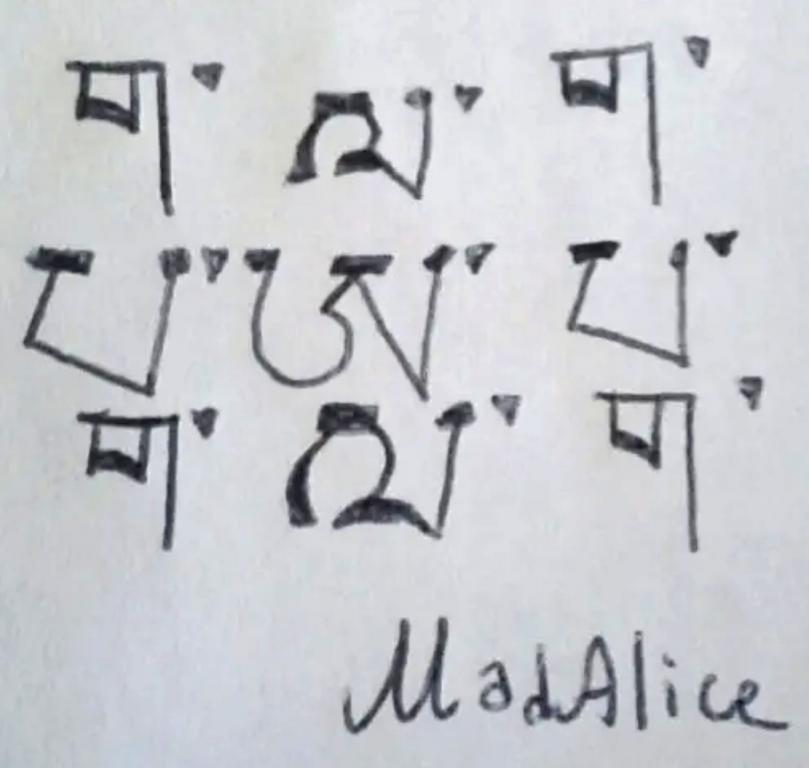 ག་ལ་ག་
པ་ཨ་པ་
ག་ལ་ག་
MadAlice